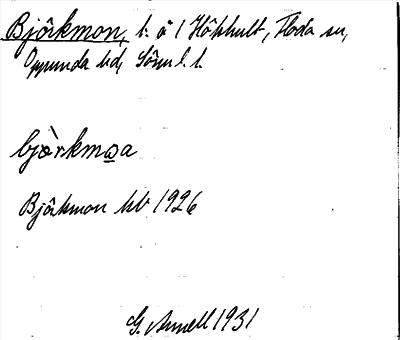 Björkmon, t. å 1 Hökhult, Floda sn,
Oppunda hd, Sörml. l.
bjòrkmωa
Björkmon kb 1926
G. Annell 1931